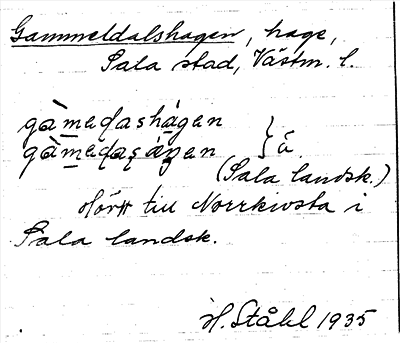 Gammeldalshagen, hage,
Sala stad, Västm. l.
gàmeḍashágen } å
gàmeḍaṣáɡen (Sala landsk.)
Hört till Norrkivsta i
Sala landsk.
H. Ståhl 1935